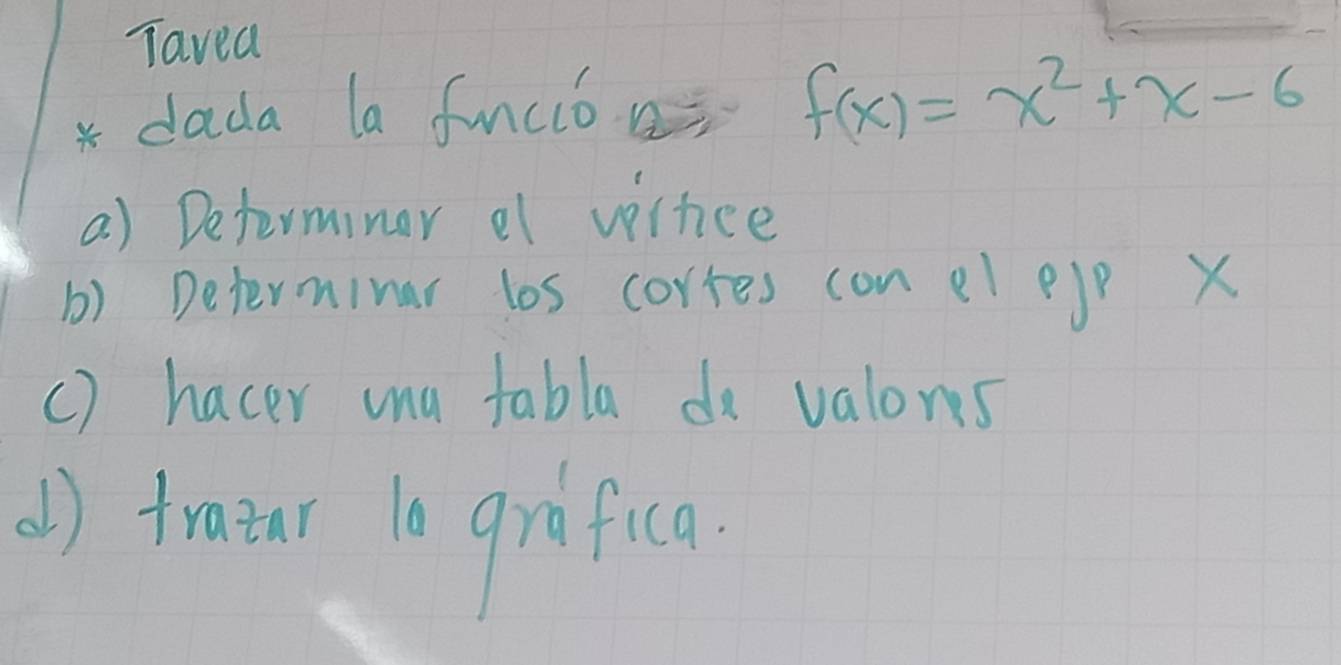 Tarea
* dada la función: f(x) = x² + x - 6
a) Determinar el vértice
b) Determinar los cortes con el eje X
c) hacer una tabla de valores
d) trazar la gráfica.